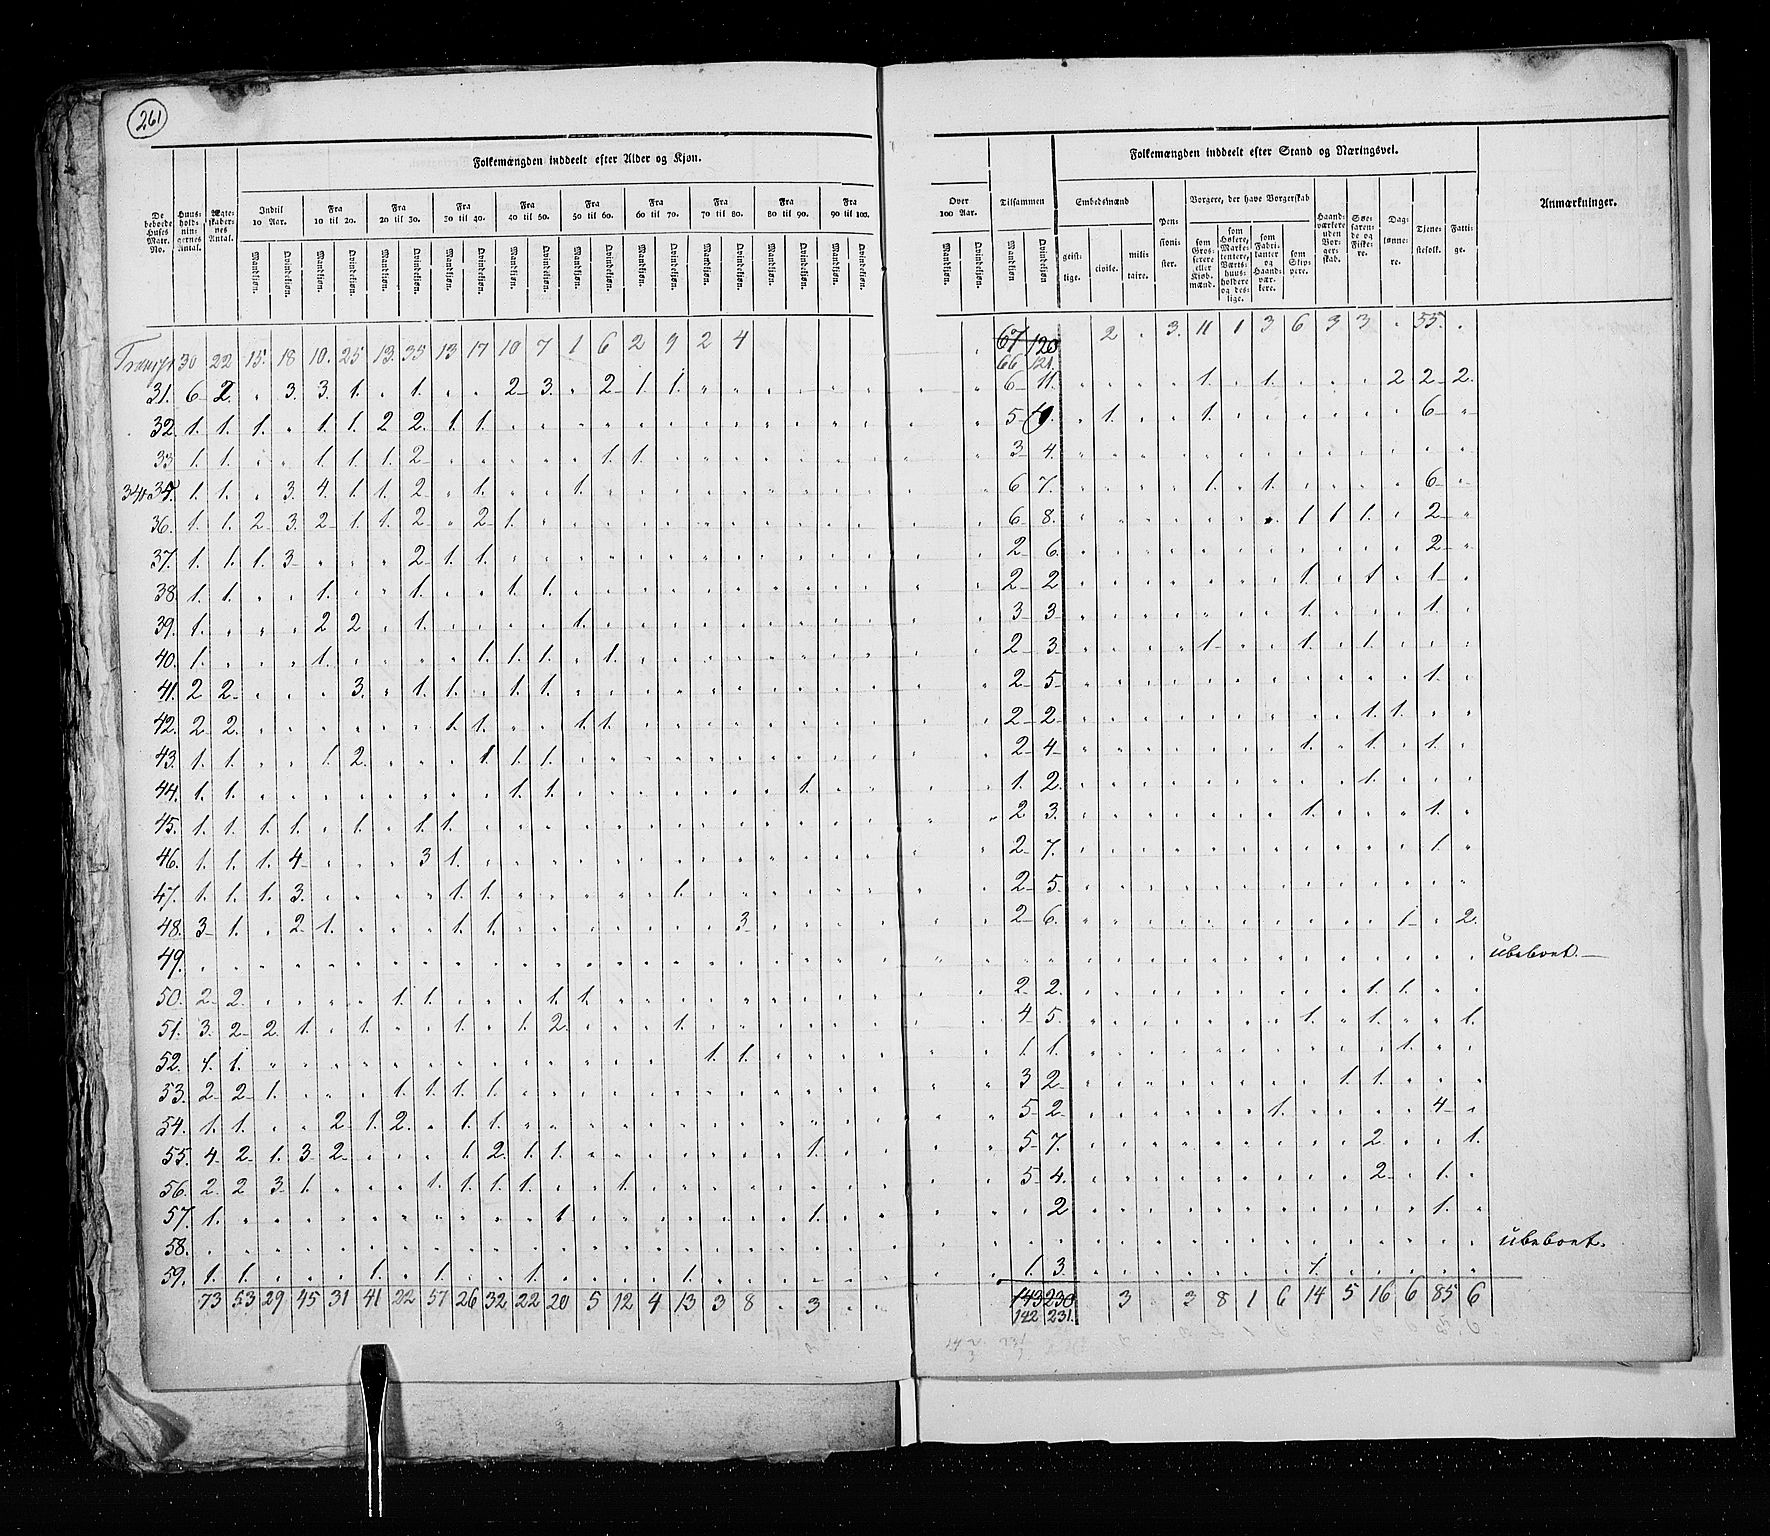 261
Folkemængden inddeelt efter Alder og Kjøn.
Folkemængden inddeelt efter Stand og Næringsvei.
De beboede Huses Matr. No. | Huus-holdnin-gernes Antal. | Ægte-skaber-nes Antal. | Indtil 10 Aar. | Fra 10 til 20. | Fra 20 til 30. | Fra 30 til 40. | Fra 40 til 50. | Fra 50 til 60. | Fra 60 til 70. | Fra 70 til 80. | Fra 80 til 90. | Fra 90 til 100. | Over 100 Aar. | Tilsammen | Embedsmænd | Pen-sioni-ster. | Borgere, der have Borgerskab | Haand-værkere uden Bor-ger-skab. | Søe-faren-de og Fiske-re. | Dag-lønne-re. | Tjene-stefolk. | Fatti-ge. | Anmærkninger.
Mandkjøn. Qvindekjøn. | geist-lige. | civile. | mili-taire. | som Gros-serere eller Kjøb-mænd. | som Høkere, Marke-tentere, Værts-huus-holdere og des-lige. | som Fabri-kanter og Haand-vær-kere. | som Skip-pere.
Transp. 30 22 15. 18 10. 25 13. 33 13 17 10 7 1 6 2 9 2 4 67 120 2 3. 11 1 3 6 3 3 55.
66 121.
31. 6 2. 3. 3. 1. 1. 2 3. 2 1. 1. 6 11. 1. 1. 2 2 2.
32. 1. 1. 1. 1. 1. 2 2. 1. 1. 5 1. 1. 6
33 1. 1. 1. 1. 1. 2 1. 1. 3 4.
34 35. 1. 1. 3. 4. 1. 1. 2 1. 1. 6 7. 1. 1. 6
36. 1. 1. 2 3. 2 1. 1. 2 2 1. 6 8. 1 1 1. 2
37. 1. 1. 1. 3 2 1. 1. 2 6. 2
38. 1. 1. 1. 1. 1. 1. 2 2 1. 1 1
39. 1. 2 2 1. 1. 3 3 1. 1.
40. 1. 1. 1. 1. 1. 1. 2 3. 1 1. 1.
41. 2 2 3. 1. 1. 1. 1. 2 5. 1.
42. 2 2. 1. 1. 1. 1. 2 2. 1. 1.
43. 1. 1. 1. 2. 1. 1. 1. 2 4 1. 1. 1.
44. 1. 1. 1. 1. 1. 1. 2. 1.
45. 1. 1. 1. 1. 1. 1. 1. 2 3. 1. 1.
46. 1. 1. 1. 4 3 1. 2 7. 1.
47. 1. 1. 1. 3. 1. 1. 1. 2 5.
48. 3 1. 2. 1. 1. 1. 3 2 6. 1 2.
49. ubeboet.
50. 2 2. 1. 1. 1. 1. 2 2. 1. 1.
51. 3. 2 2. 1. 1. 1. 1. 2. 1. 4 5. 1. 1. 1.
52. 1. 1. 1. 1. 1. 1. 1.
53. 2 2 1. 1. 1. 1. 1. 3 2 1. 1.
54. 1. 1. 2 1. 2. 1. 1. 5 2. 1. 4
55. 4 2 1. 3 2 1. 2. 1. 1. 1. 5 7. 2 1.
56. 2. 2 3. 1. 1. 1. 1. 1. 1. 5 4. 2 1.
57. 1. 1 1. 2 1.
58. ubeboet.
59. 1. 1. 1. 1. 1. 1. 1. 3. 1.
73 53 29 45 31 41 22 57 26 32 22 20 5 12 4 13 3 8 3 143 230 3 3 8 1 6 14 5 16 6 85 6
142 231.